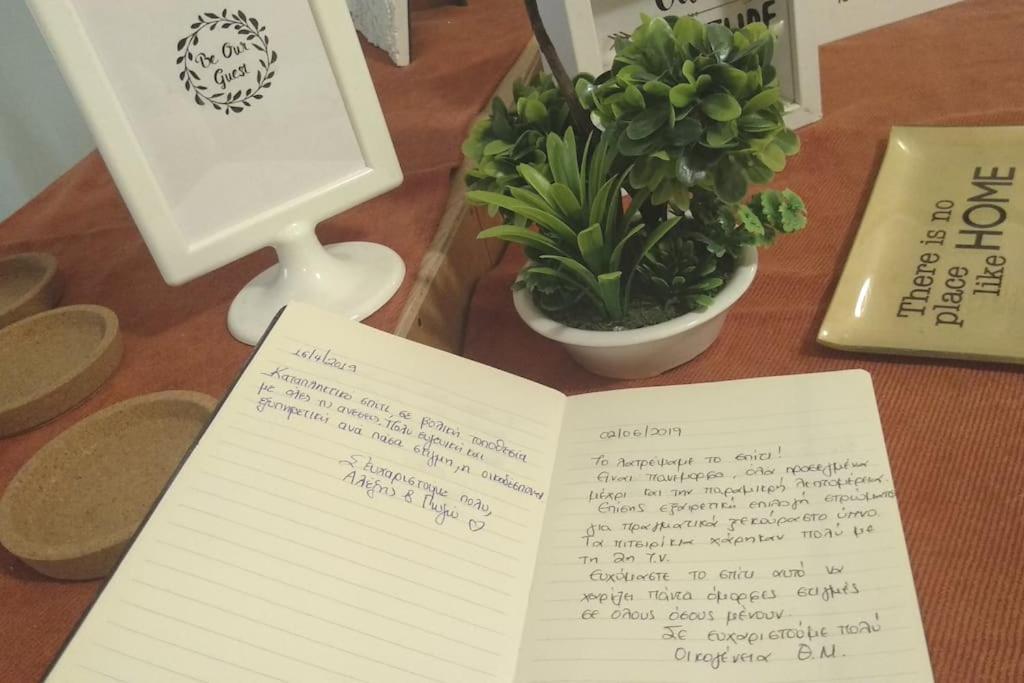 Be Our
Guest
There is no
place HOME
like
16/4/2019
Καταπληκτικό σπίτι, σε βολική τοποθεσία
με όλες τις ανέσεις. Πολύ ευγενική και
εξυπηρετική ανά πάσα στιγμή, η οικοδέσποινα
Σ'ευχαριστούμε πολύ,
Αλέξης &
02/06/2019
Το λατρέψαμε το σπίτι!
Είναι πανέμορφο, όλα προσεγμένα
μέχρι και την παραμικρή λεπτομέρεια.
Επίσης εξαιρετική επιλογή στρώματος
για πραγματικά ξεκούραστο ύπνο.
Τα πιτσιρίκια χάρηκαν πολύ με
τη 2η T.V.
Ευχόμαστε το σπίτι αυτό να
χαρίζει πάντα όμορφες στιγμές
σε όλους όσους μένουν.
Σε ευχαριστούμε πολύ
Οικογένεια Θ.Μ.